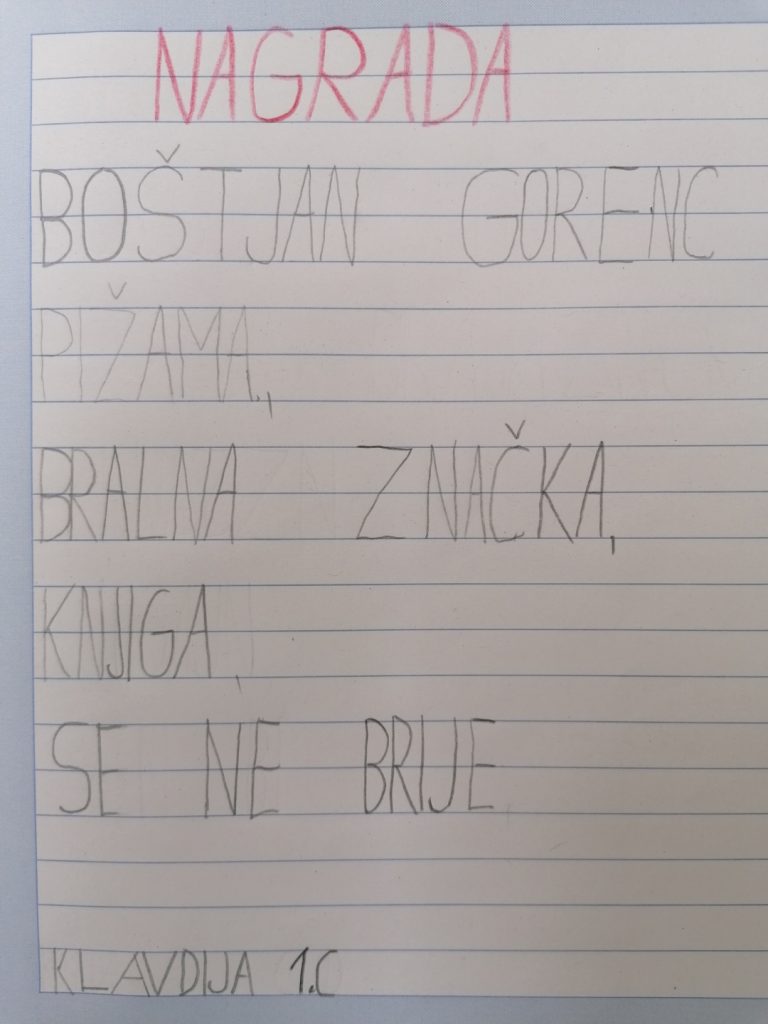 NAGRADA
BOŠTJAN GORENC
PIŽAMA.,
BRALNA ZNAČKA,
KNJIGA,
SE NE BRIJE
KLAVDIJA 1.C